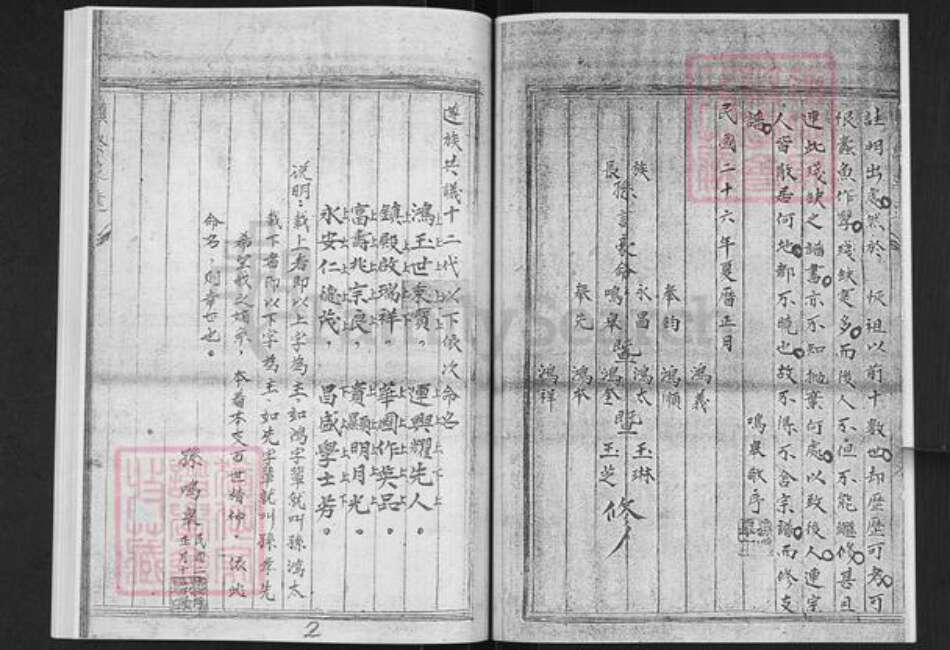 註明出處然於 恢祖以前十數世却歷歷可考可
恨蠹魚作孽殘缺甚多而後人不但不能繼修甚且
連此殘缺之譜書亦不知拋棄何處以致後人連宗
人皆散居何地都不曉也故不得不舍宗譜而修支
譜
鳴皋敬序
民國二十六年夏曆正月
族長 孫言豪命
永昌 鳴皋
奉鈞
奉先
暨
鴻義
鴻順
鴻太
鴻奎
鴻本
鴻祥
玉琳
玉芝
修
遵族共議十二代以下依次命名
鴻玉世東賢。運興耀先人。
鎮殿啟瑞祥。華國作英品。
富壽兆宗良。寶顯明月光。
永安仁德茂。昌盛學士芳。
说明:載上者即以上字為主,如鴻字輩就叫孫鴻太
載下者即以下字為主,如先字輩就叫孫奉先
希望我之
命名,則幸甚也。
孫鳴皋
2
FamilySearch